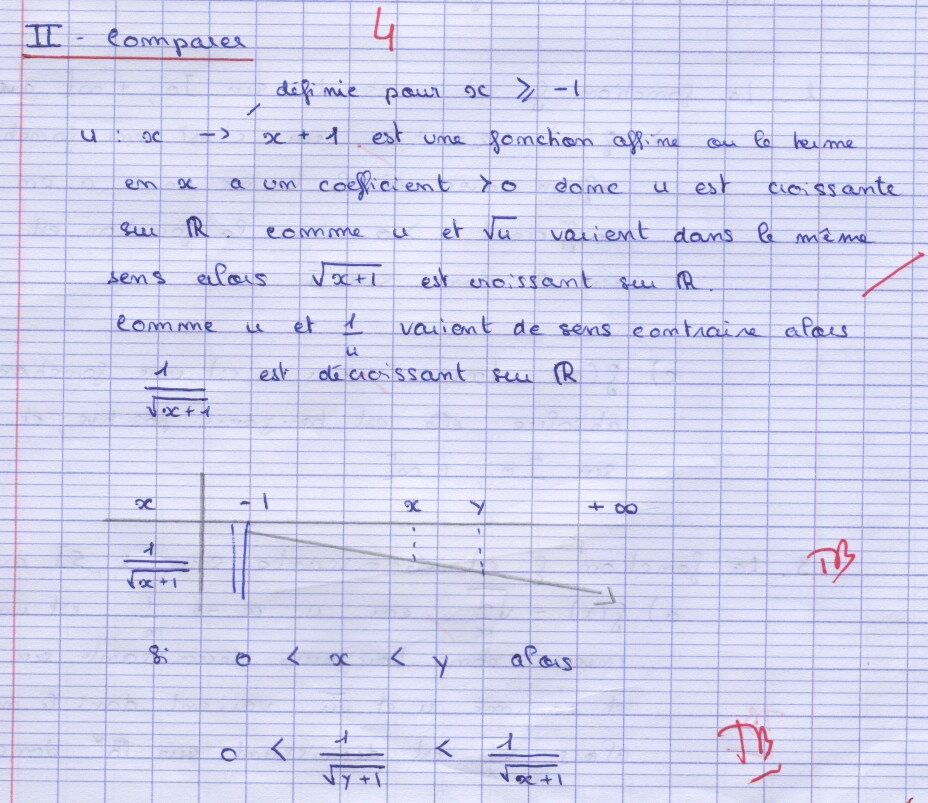 II - Comparer 4
définie pour x ⩾ -1
u : x → x + 1 est une fonction affine ou le terme
en x a un coefficient > 0 donc u est croissante
sur ℝ. comme u et √u varient dans le même
sens alors √(x+1) est croissant sur ℝ.
Comme u et 1/u varient de sens contraire alors
1/√(x+1) est décroissant sur ℝ
x -1 x y +∞
1/√(x+1)
TB
Si 0 < x < y alors
0 < 1/√(y+1) < 1/√(x+1)
TB